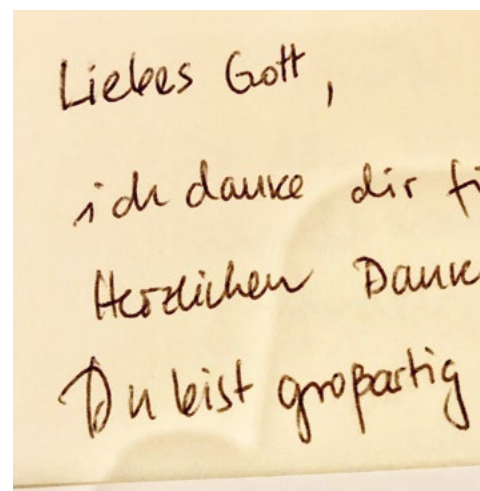 Liebes Gott,
ich danke dir fü
Herzlichen Dank
Du bist großartig